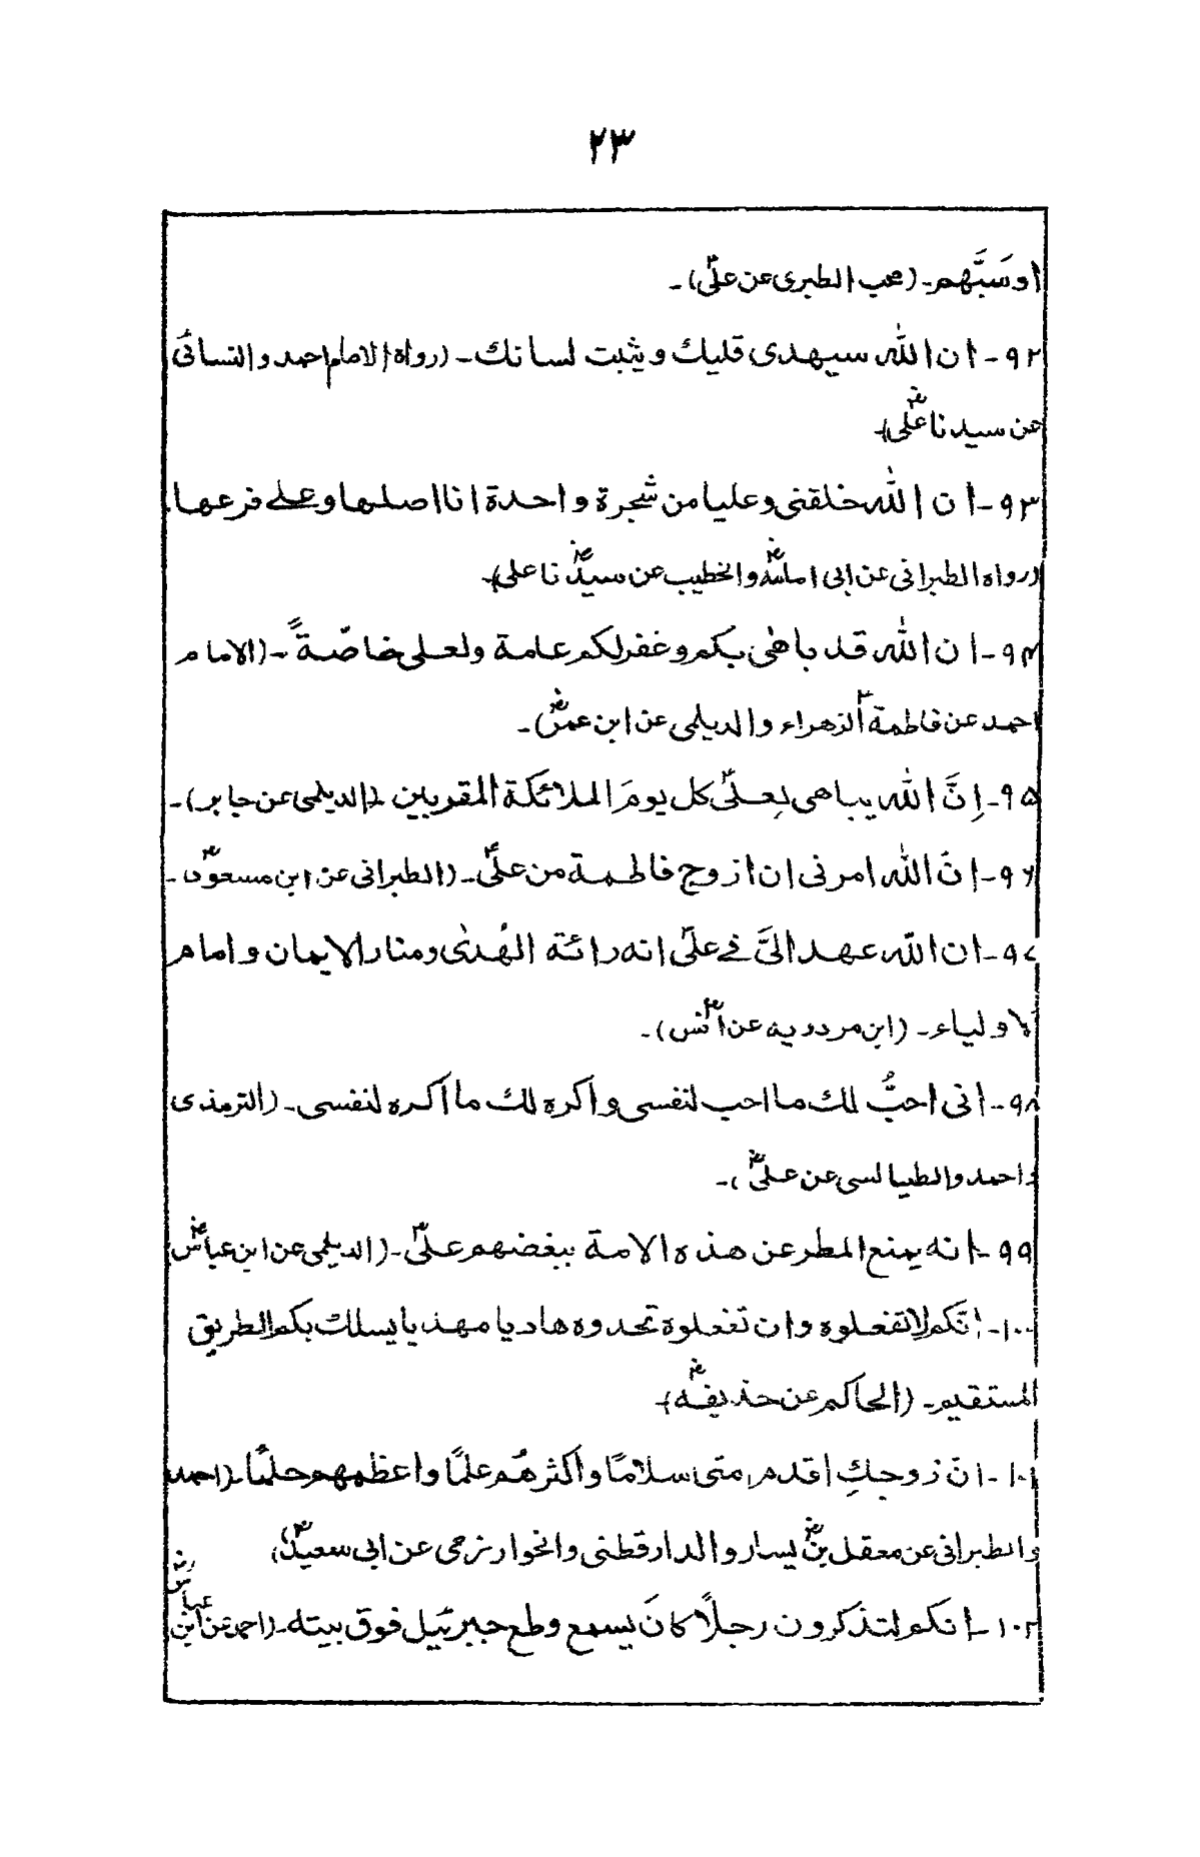 ۲۳
او سَبَّهم۔ (محب الطبری عن علیؓ)۔
۹۲۔ ان اللّٰہ سیھدی قلبك ویثبت لسانك۔ (رواہ الامام احمد والنسائی
عن سیدنا علیؓ)۔
۹۳۔ ان اللّٰہ خلقنی وعلیا من شجرة واحدة انا اصلھا وعلے فرعھا۔
(رواہ الطبرانی عن ابی امامةؓ والخطیب عن سیدنا علیؓ)۔
۹۴۔ ان اللّٰہ قد باھٰی بکم وغفرلکم عامة ولعلی خاصّةً۔ (الامام
احمد عن فاطمة الزھراءؓ والدیلمی عن ابن عمرؓ)۔
۹۵۔ اِنَّ اللّٰہ یباھی بِعلیؓ کل یومَ الملائکة المقربین۔ (الدیلمی عن جابر)۔
۹۶۔ انَّ اللّٰہ امرنی ان ازوج فاطمة من علیؓ۔ (الطبرانی عن ابن مسعودؓ)۔
۹۷۔ ان اللّٰہ عھد الیَّ فے علیؓ انه رائة الھُدٰی ومنار الایمان وامام
الاولیاء۔ (ابن مردویه عن انسؓ)۔
۹۸۔ انی احبُّ لك ما احب لنفسی واکرہ لك ما اکرہ لنفسی۔ (الترمذی
واحمد والطیالسی عن علیؓ)۔
۹۹۔ انه یمنع المطر عن ھذہ الامة ببغضھم علیؓ۔ (الدیلمی عن ابن عباسؓ)
۱۰۰۔ انّکم لاتفعلوہ وان تفعلوہ تجدوہ ھادیا مھدیا یسلك بکم الطریق
المستقیم۔ (الحاکم عن حذیفهؓ)۔
۱۰۱۔ انّ زوجكِ اقدم امتی سلامًا واکثرھُم علمًا واعظمھم حلمًا۔ (احمد
والطبرانی عن معقل بنؓ یسار والدارقطنی والخوارزمی عن ابی سعیدؓ)
۱۰۲۔ انکم لتذکرون رجلاً کانَ یسمع وطع جبرئیل فوق بیته۔ (احمد عن ابن عباسؓ)